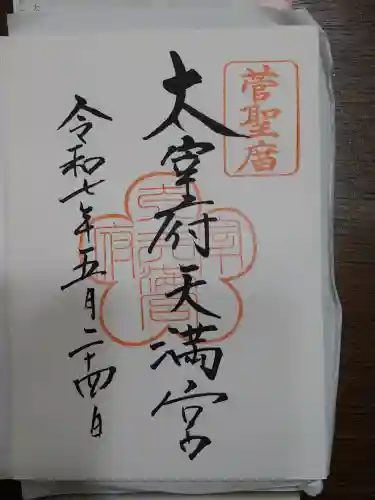 菅聖庿
太宰府天満宮
令和七年五月二十四日